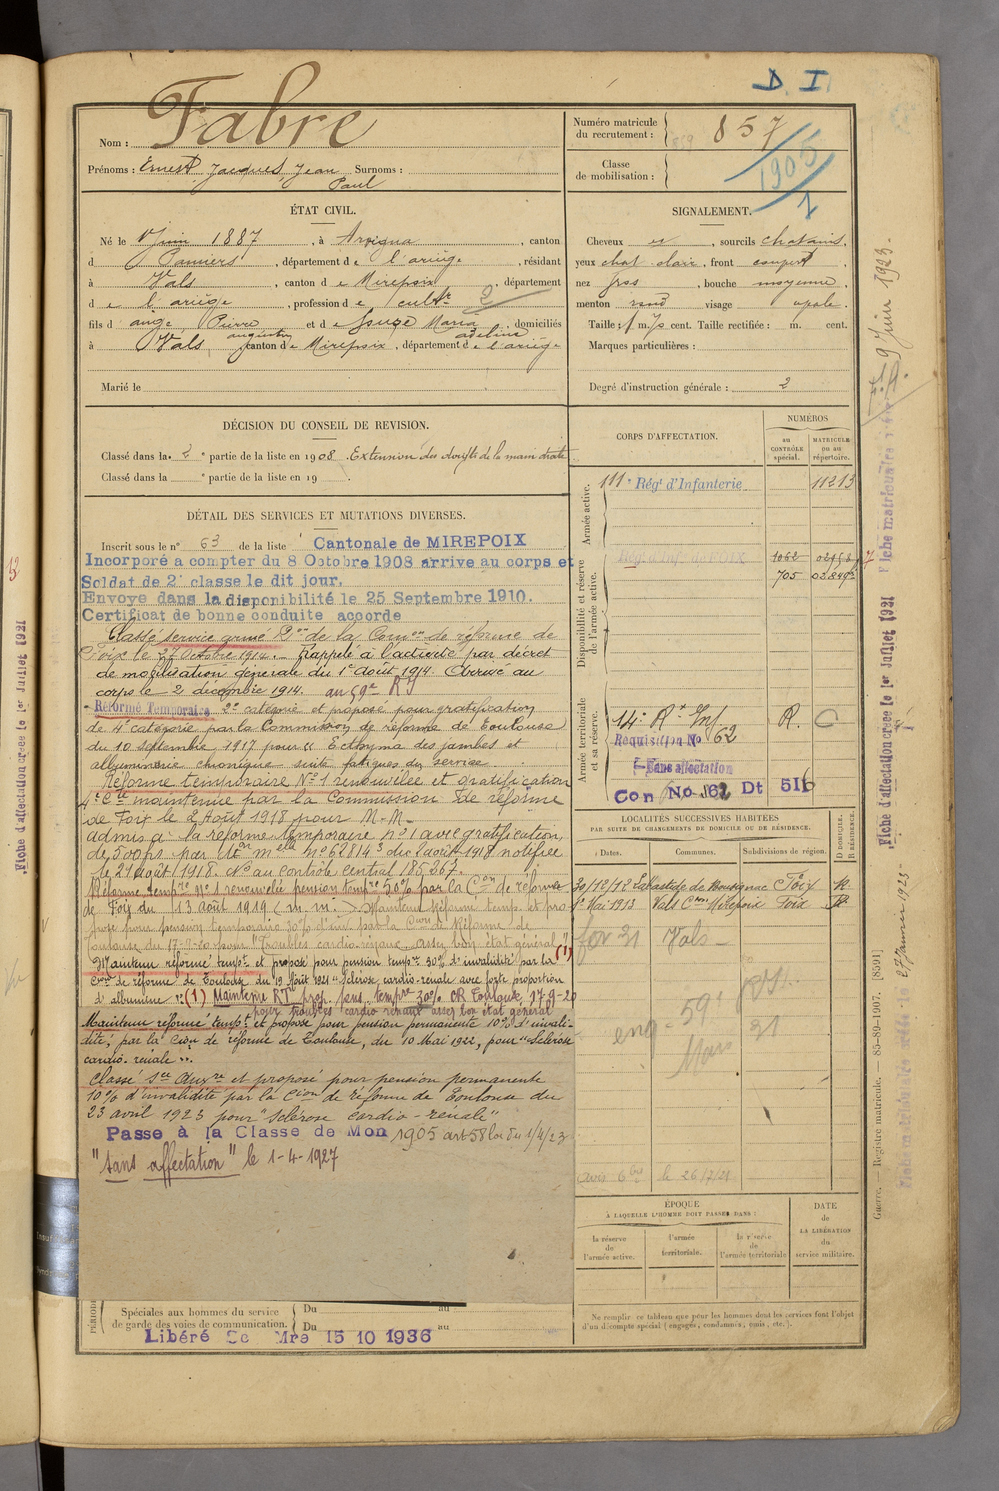 D. I.
Fabre
Nom :
Prénoms : Ernest Jacques, Jean Surnoms :
Paul
Numéro matricule
du recrutement : 857
Classe
de mobilisation :
1905
1
ÉTAT CIVIL.
Né le 1 Juin 1887, à Arvigna, canton
d Pamiers, département de l'ariège, résidant
à Vals, canton de Mirepoix, département
de l'ariège, profession de cultr 2
fils d ange, Pierre et de Jouge Maria, domiciliés
adeline
à Vals, canton de Mirepoix, département de l'ariège
Marié le
SIGNALEMENT.
Cheveux, sourcils chatains,
yeux chat. clair, front,
nez gros, bouche moyenne,
menton rond visage ovale.
Taille : 1 m. cent. Taille rectifiée : m. cent.
Marques particulières :
Degré d'instruction générale : 2
DÉCISION DU CONSEIL DE REVISION.
Classé dans la 2 e partie de la liste en 1908. Extension des doigts de la main droite
Classé dans la e partie de la liste en 19 .
DÉTAIL DES SERVICES ET MUTATIONS DIVERSES.
Inscrit sous le n° 63 de la liste Cantonale de MIREPOIX
Incorporé a compter du 8 Octobre 1908 arrive au corps et
Soldat de 2e classe le dit jour.
Envoye dans la disponibilité le 25 Septembre 1910.
Certificat de bonne conduite accorde
Classé service armé Don de la Comon de réforme de
Foix le 27 Octobre 1914. Rappelé à l'activité par décret
de mobilisation génerale du 1er Août 1914 Arrivé au
corps le 2 décembre 1914. au 59e RI
Réformé Temporaire 2e catégorie et proposé pour gratification
de 4e catégorie par la Commission de réforme de Toulouse
du 10 septembre 1917 pour "Ecthyma des jambes et
albuminurie chronique suite fatigues du service.
Réforme temporaire N°1 renouvelée et gratification
4e Cie maintenue par la Commission de réforme
de Foix le 2 Août 1918 pour M.M.
admis à la réforme temporaire n°1 avec gratification
de 500 frs par Don Melle n° 62814 3 du 2 août 1918 notifiée
le 21 août 1918. N° au contrôle central 185 367.
Réforme tempre n°1 renouvelée pension tempre 50% par la Con de réforme
de Foix du 13 août 1919 (m. m.). Maintenu réformé temp. et pro-
posé pour pension temporaire 30% d'inv. par la Cion de Réforme de
Toulouse du 17-9-20 pour "Troubles cardio-rénaux, assez bon état général" (1)
Maintenu réformé tempt et proposé pour pension tempre 30% d'invalidité par la
Cion de réforme de Toulouse du 19 Août 1921 "Sclérose cardio-rénale avec forte proportion
d'albumine". (1) Maintenu RT prop. pens. tempre 30% CR Toulouse 17-9-20
pour troubles cardio rénaux assez bon état général
Maintenu réformé tempt et proposé pour pension permanente 10% d'invali-
dité, par la Cion de réforme de Toulouse, du 10 Mai 1922, pour "Sclérose
cardio-rénale".
Classé Sce Auxre et proposé pour pension permanente
10% d'invalidité par la Cion de réforme de Toulouse du
23 avril 1923 pour "sclérose cardio-rénale"
Passe à la Classe de Mon 1905 art 58 loi du 1/4/23
"sans affectation" le 1-4-1927
Spéciales aux hommes du service
de garde des voies de communication.
Du au
Du au
Libéré Mre 15 10 1936
CORPS D'AFFECTATION.
NUMÉROS
au
CONTRÔLE
spécial.
MATRICULE
ou au
répertoire.
Armée active.
111e Régt d'Infanterie 11213
Disponibilité et réserve
de l'armée active.
Rég. d'Inf. de FOIX 1062
705
Armée territoriale
et sa réserve.
14e Rt Inf R. C
Requisition No 62
Sans affectation
Con No 162 Dt 516
LOCALITÉS SUCCESSIVES HABITÉES
PAR SUITE DE CHANGEMENTS DE DOMICILE OU DE RÉSIDENCE.
Dates. Communes. Subdivisions de région. D DOMICILE. R RÉSIDENCE.
30/12/12 Labastide de Bousignac Foix R
1er Mai 1913 Vals Con Mirepoix Foix R
fév 31 Vals
59e
Mars 31
avis le 26/7/21
ÉPOQUE
À LAQUELLE L'HOMME DOIT PASSER DANS :
la réserve
de
l'armée active.
l'armée
territoriale.
la réserve
de
l'armée territoriale
DATE
de
LA LIBÉRATION
du
service militaire.
Ne remplir ce tableau que pour les hommes dont les services font l'objet
d'un décompte spécial (engagés, condamnés, omis, etc.).
9 Juin 1923.
Fiche d'affectation créée le 1er Juillet 1921
Fiche matriculaire
27 Janvier 1923
Guerre. — Registre matricule. — 85-89-1907. [8591]
Fiche d'affectation créée le 1er Juillet 1921